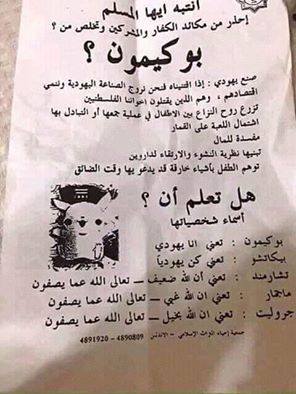 انتبه ايها المسلم
إحذر من مكائد الكفار والمشركين وتخلص من ؟
بوكيمون ؟
صنع يهودي : إذا اقتنيناه فنحن نروج الصناعة اليهودية وننمي
اقتصادهم ، وهم الذين يقتلون اخواننا الفلسطنيين
تزرع روح النزاع بين الاطفال في عملية جمعها أو التبادل بها
اشتمال اللعبة على القمار
مفسدة للمال
تبنيها نظرية النشوء والارتقاء لداروين
توهم الطفل بأشياء خارقة قد يدعو بها وقت الضائق
هل تعلم أن ؟
أسماء شخصياتها
بوكيمون : تعني انا يهودي
بيكاتشو : تعني كن يهودياً
تشارمند : تعني أن الله ضعيف – تعالى الله عما يصفون
ماجمار : تعني ان الله غبي – تعالى الله عما يصفون
جروليت : تعني ان الله بخيل – تعالى الله عما يصفون
جمعية إحياء التراث الإسلامي – الاندلس 4890809 – 4891920